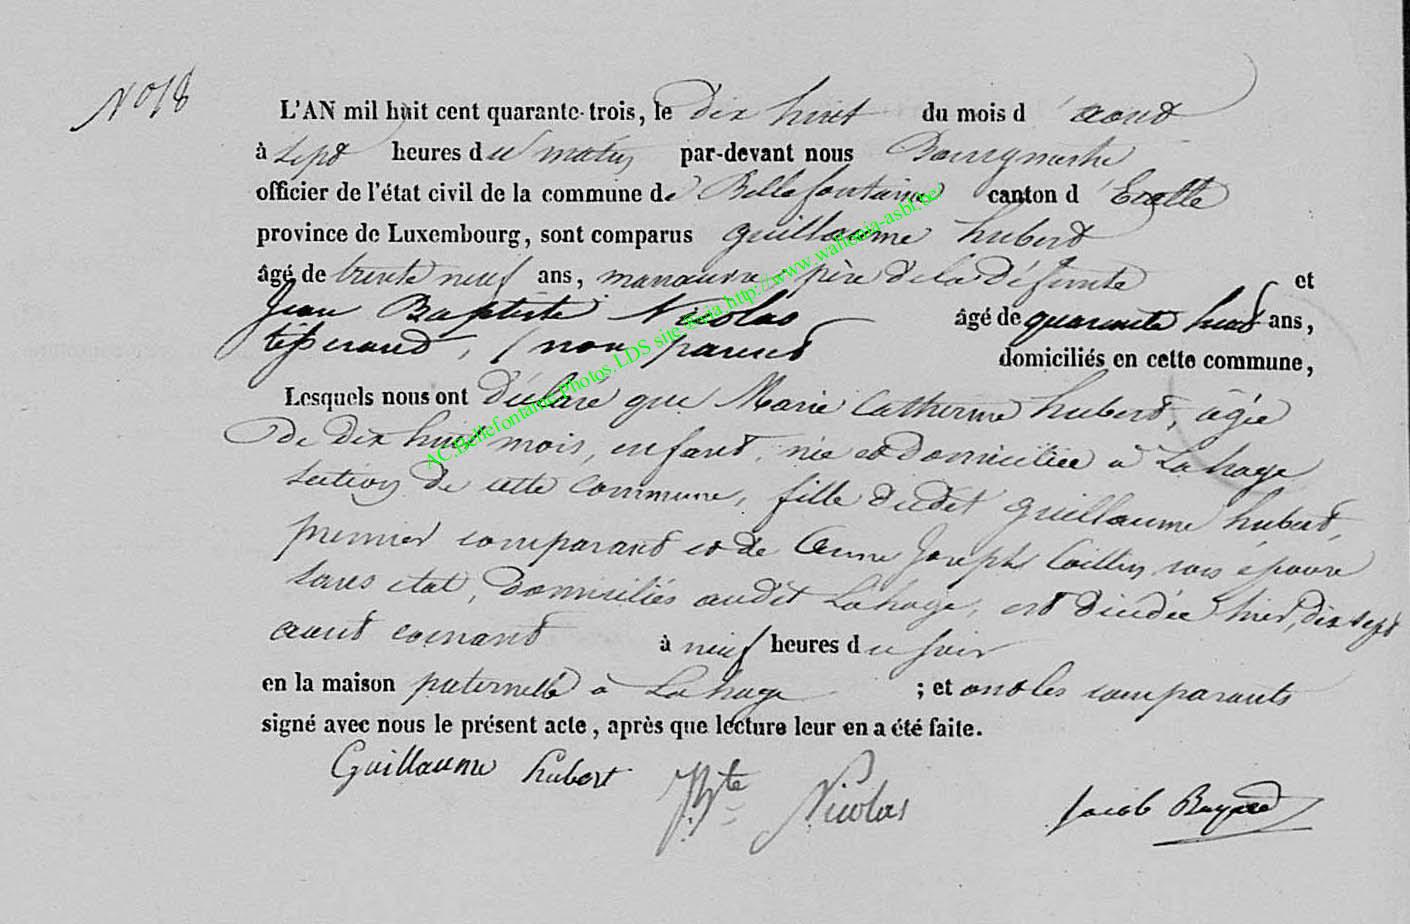 No 18
L'AN mil huit cent quarante-trois, le dix huit du mois d'aout
à sept heures du matin par-devant nous Bourgmestre
officier de l'état civil de la commune de Bellefontaine canton d'Etalle
province de Luxembourg, sont comparus Guillaume hubert
âgé de trente neuf ans, manœuvre, père de la défunte et
Jean Baptiste Nicolas âgé de quarante huit ans,
tisserand, (non parent domiciliés en cette commune,
Lesquels nous ont déclaré que Marie Catherine hubert, agée
de dix huit mois, enfant, née et domiciliée à Lahage
section de cette commune, fille dudit Guillaume hubert,
premier comparant et de Anne Joseph Collin son épouse
sans état, domiciliés audit Lahage, est décédée hier, dix sept
aout courant à neuf heures du soir
en la maison paternelle à Lahage ; et ont les comparants
signé avec nous le présent acte, après que lecture leur en a été faite.
Guillaume hubert JBte Nicolas Jacob Bayard
AC.Bellefontaine.Photos.LDS site Paria http://www.wallonia-asbl.be/